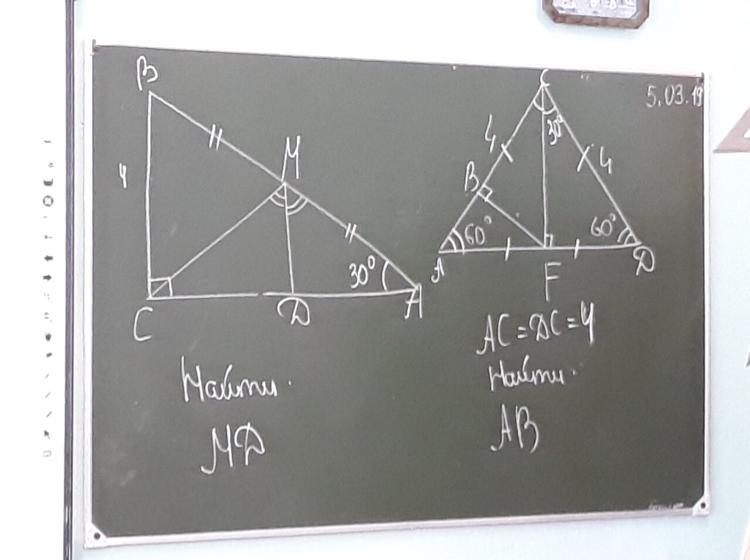 5.03.19
B
4
M
30°
C
D
A
C
30°
4
4
B
60°
60°
A
F
D
Найти
MD
AC=DC=4
Найти
AB